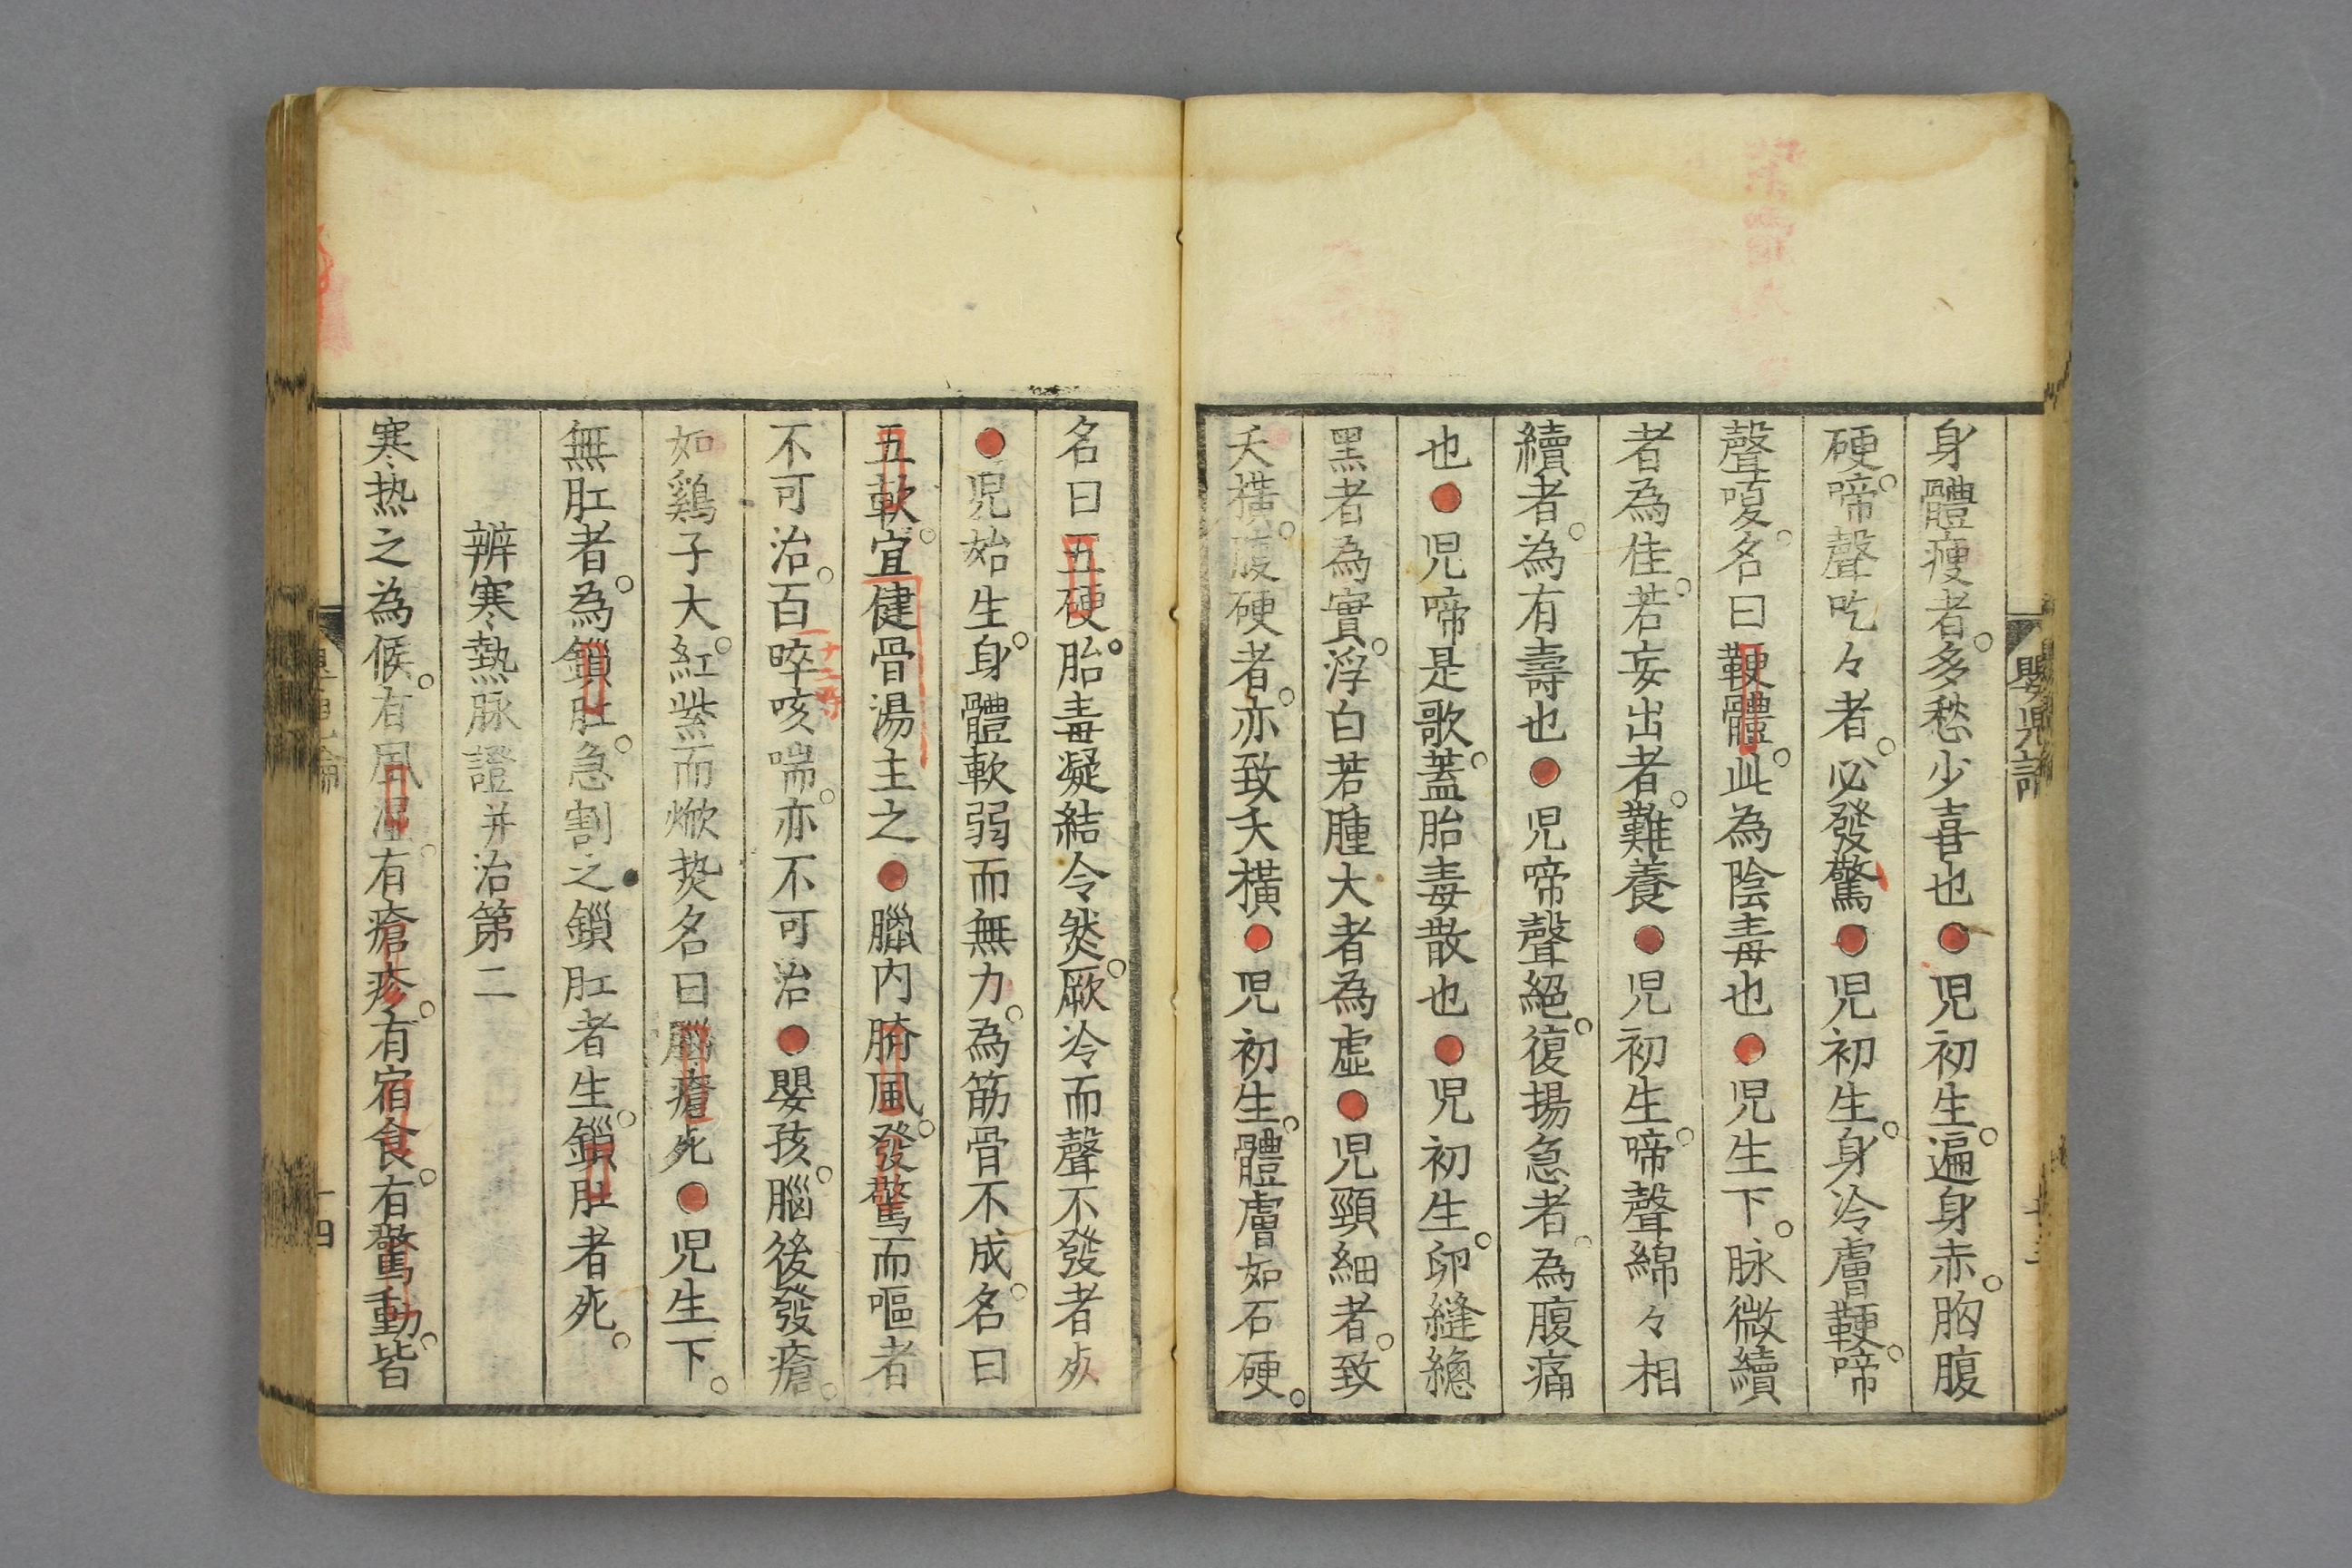 身體瘦者。多愁少喜也●児初生。遍身赤。胸腹
硬。啼聲吃々者。必發驚●児初生。身冷膚鞕。啼
聲嗄。名曰鞕體。此為陰毒也●児生下。脉微續
者為佳。若妄出者。難養●児初生。啼聲綿々相
續者。為有壽也●児啼聲絕。復揚急者。為腹痛
也●児啼是歌。蓋胎毒散也●児初生。卵縫緫
黑者為實。浮白若腫大者為虛●児頸細者。致
夭橫。腹硬者。亦致夭橫●児初生。體膚如石硬。
名曰五硬。胎毒凝結令然。厥冷而聲不發者死
●児始生。身體軟弱而無力。為筋骨不成。名曰
五軟。宜健骨湯主之●臘内臍風。發驚而嘔者
不可治。百啐咳喘。亦不可治●嬰孩。腦後發瘡。
如鷄子大。紅紫而焮𤍠名曰腦瘡死●児生下。
無肛者。為鎖肛。急割之鎖肛者生。鎖肚者死。
辨寒熱脉證并治第二
寒热之為候。有風湿。有瘡疹。有宿食。有驚動。皆